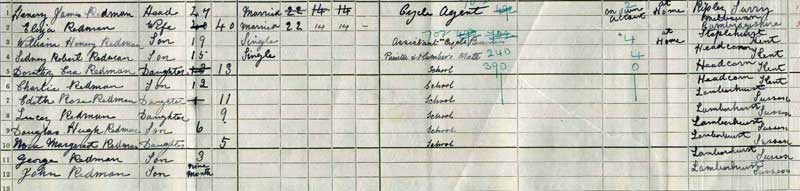 Henry James Redman Head 47 Married 22 14 14 Cycle Agent on own account at Home Ripley Surrey
2 Eliza Redman Wife 40 Married 22 14 14 — Cambridgeshire
3 William Henry Redman Son 19 Single Assistant Cycle 4 at Home Staplehurst Kent
4 Sidney Robert Redman Son 15 Single Painter & Plumber's Mate 240 4 Headcorn Kent
5 Dorothy Eva Redman Daughter 13 School 390 0 Headcorn Kent
6 Charlie Redman Son 12 School 1 Headcorn Kent
7 Edith Rose Redman Daughter 11 School Lamberhurst Sussex
8 Redman Daughter 9 School Lamberhurst Sussex
9 Douglas Hugh Redman Son 6 School Lamberhurst Sussex
10 Margaret Redman Daughter 5 School Lamberhurst Sussex
11 George Redman Son 3 Lamberhurst Sussex
12 John Redman Son nine month Lamberhurst Sussex
13